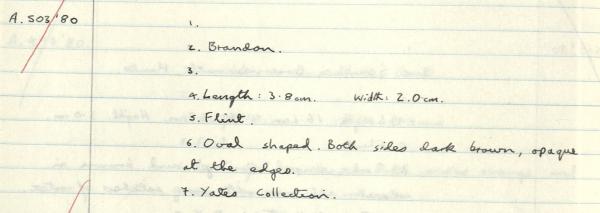 A. 503 '80
1.
2. Brandon.
3.
4. Length : 3.8cm. Width: 2.0cm.
5. Flint.
6. Oval shaped. Both sides dark brown, opaque
at the edges.
7. Yates Collection.